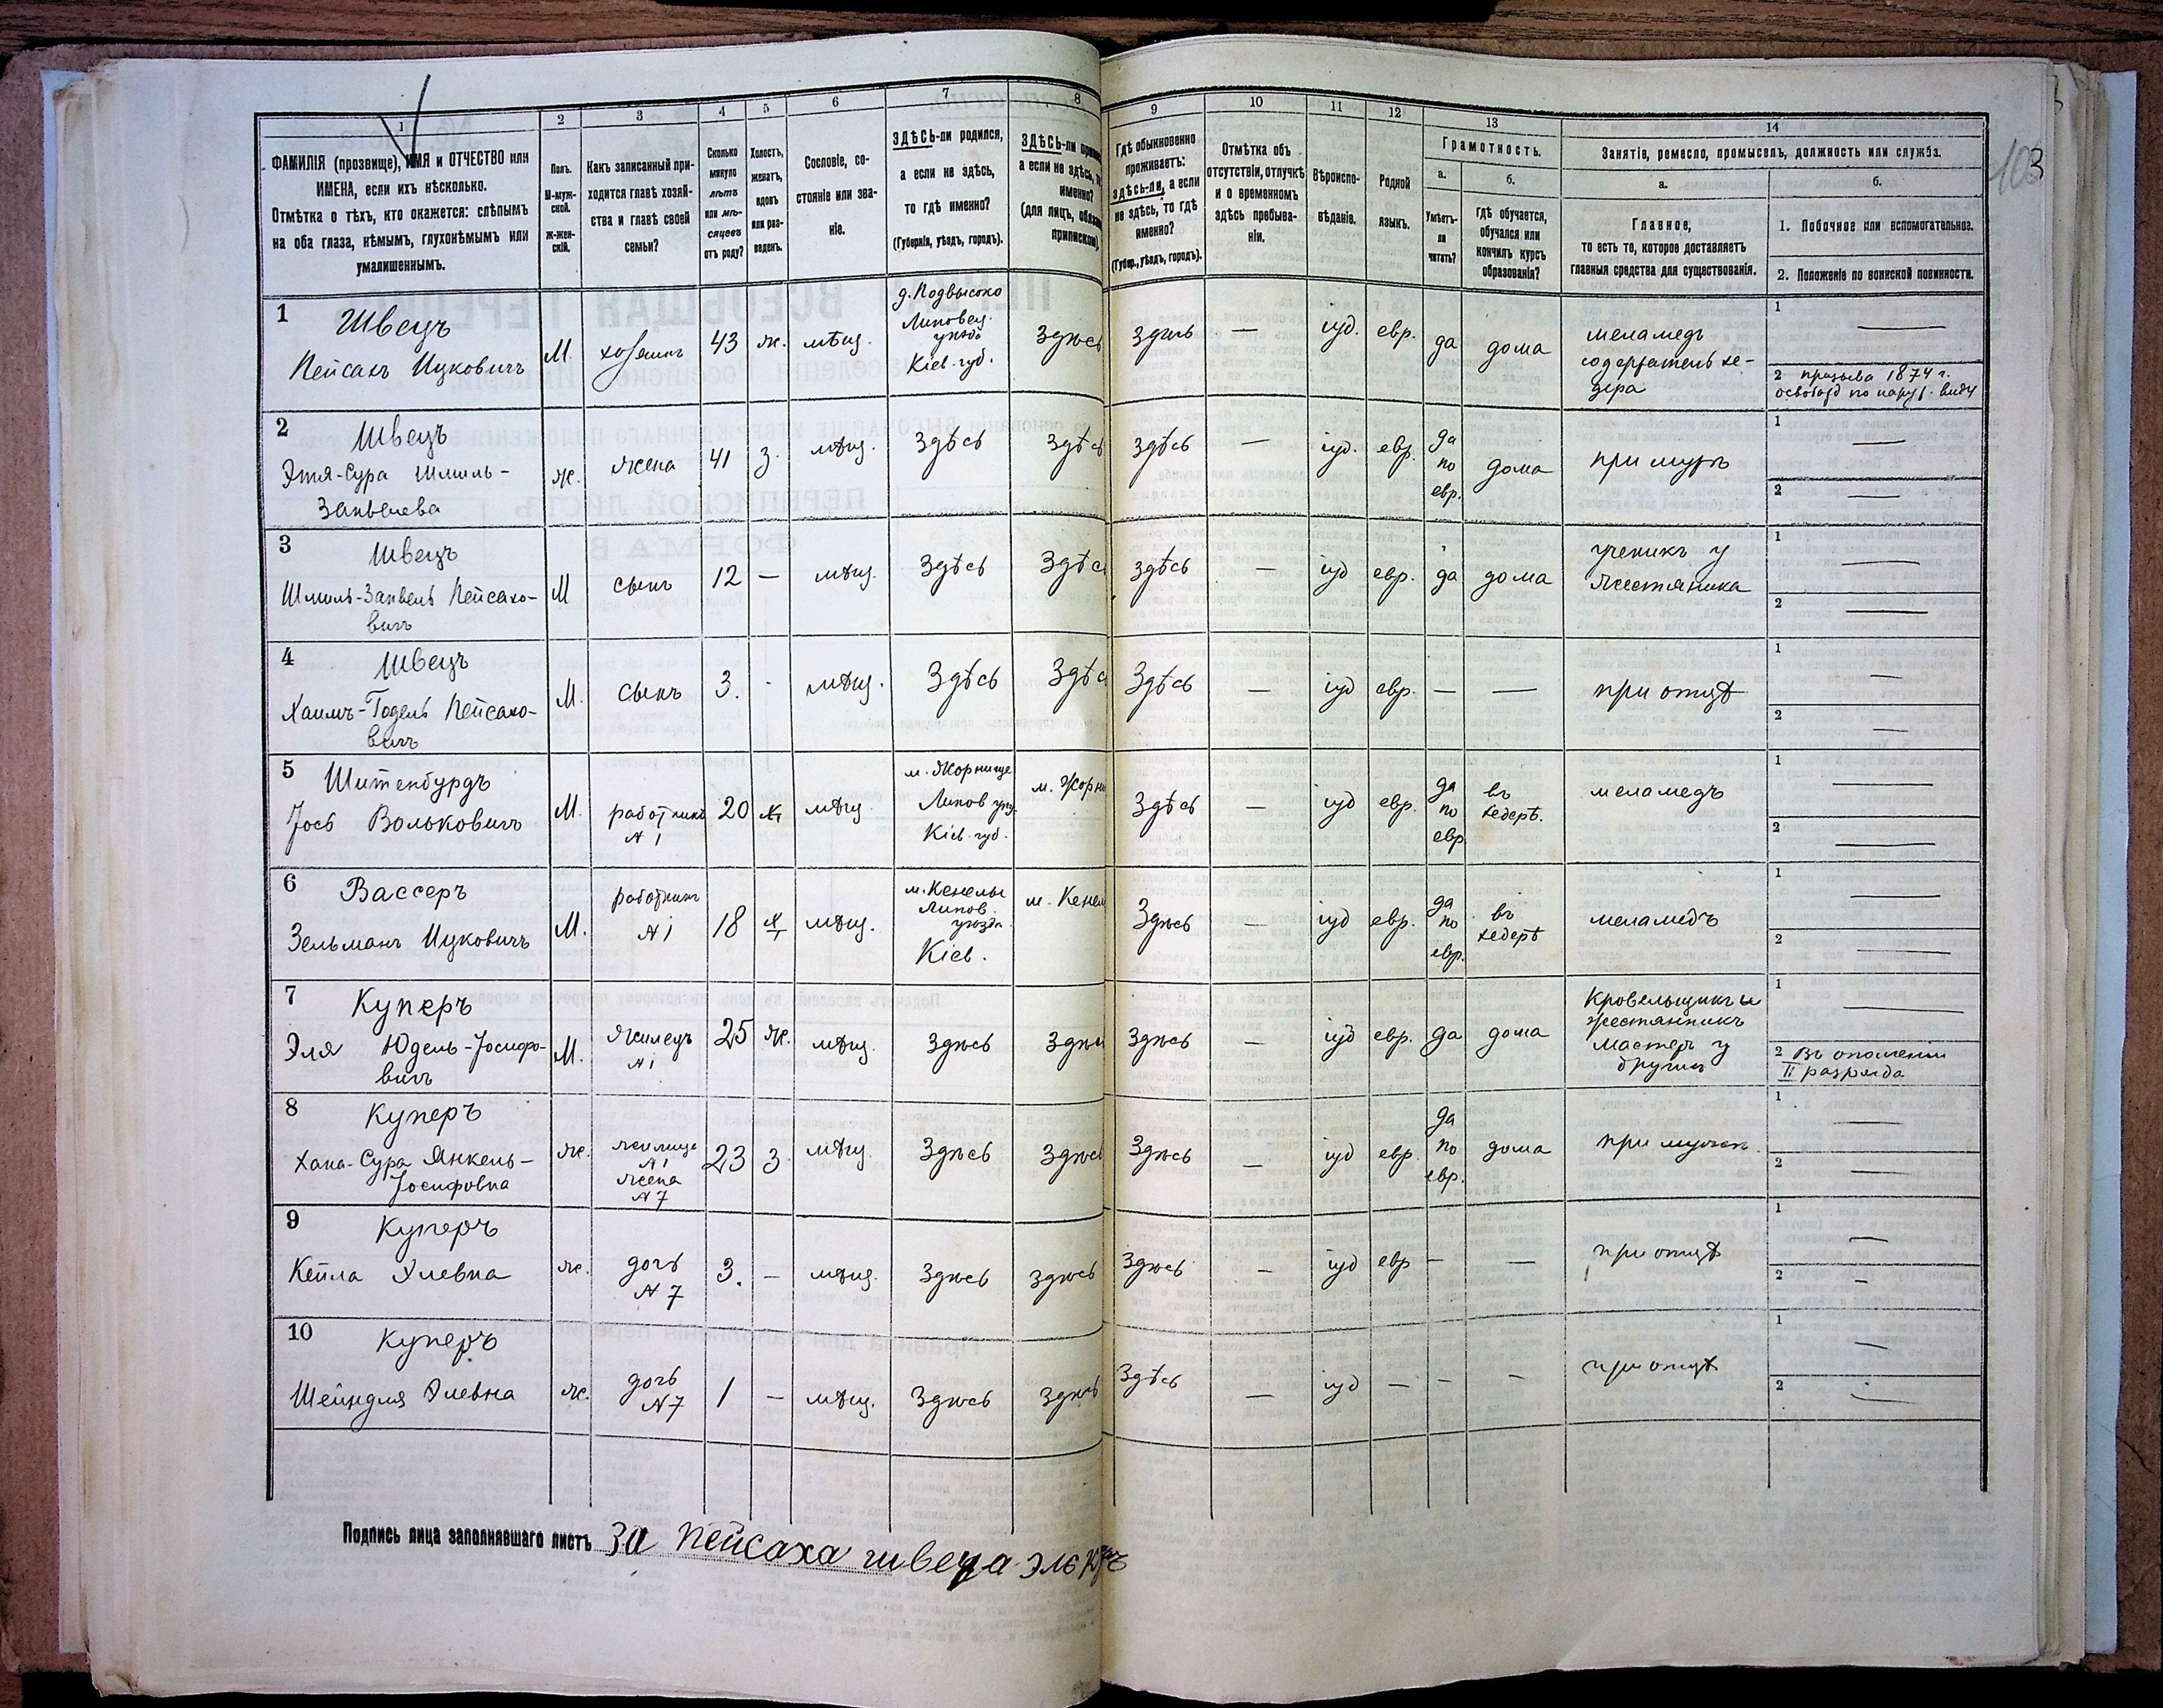 1 2 3 4 5 6 7 8 9 10 11 12 13 14
103
ФАМИЛІЯ (прозвище), ИМЯ и ОТЧЕСТВО или
ИМЕНА, если ихъ нѣсколько.
Отмѣтка о тѣхъ, кто окажется: слѣпымъ
на оба глаза, нѣмымъ, глухонѣмымъ или
умалишеннымъ.
Полъ.
М-муж-
ской.
Ж-жен-
скій.
Какъ записанный при-
ходится главѣ хозяй-
ства и главѣ своей
семьи?
Сколько
минуло
лѣтъ
или мѣ-
сяцевъ
отъ роду?
Холостъ,
женатъ,
вдовъ
или раз-
веденъ.
Сословіе, со-
стояніе или зва-
ніе.
ЗДѢСЬ-ли родился,
а если не здѣсь,
то гдѣ именно?
(Губернія, уѣздъ, городъ).
ЗДѢСЬ-ли
а если не здѣсь,
именно?
(для лицъ,
припискою)
Гдѣ обыкновенно
проживаетъ:
здѣсь-ли, а если
не здѣсь, то гдѣ
именно?
(Губер., уѣздъ, городъ).
Отмѣтка объ
отсутствіи, отлучкѣ
и о временномъ
здѣсь пребыва-
ніи.
Вѣроиспо-
вѣданіе.
Родной
языкъ.
Грамотность.
а.
Умѣетъ-
ли
читать?
б.
Гдѣ обучается,
обучался или
кончилъ курсъ
образованія?
Занятіе, ремесло, промыселъ, должность или служба.
а.
Главное,
то есть то, которое доставляетъ
главныя средства для существованія.
б.
1. Побочное или вспомогательное.
2. Положеніе по воинской повинности.
1
Швецъ
Пейсахъ Ицковичъ
М.
хозяинъ
43
ж.
мѣщ.
д. Подвысоко
Липовец.
уѣзд.
Кіев. губ.
Здѣсь
Здѣсь
—
іуд.
евр.
да
дома
меламедъ
содержатель хе-
дера
1 —
2 призыва 1874 г.
2
Швецъ
Этя-Сура Шмиль-
Запвелева
ж.
жена
41
з.
мѣщ.
Здѣсь
Здѣсь
Здѣсь
—
іуд.
евр.
да
по
евр.
дома
при мужѣ
1 —
2 —
3
Швецъ
Шмиль-Запвель Пейсахо-
вичъ
М
сынъ
12
—
мѣщ.
Здѣсь
Здѣс
Здѣсь
—
іуд
евр.
да
дома
ученикъ у
жестяника
1 —
2 —
4
Швецъ
Хаимъ-Годель Пейсахо-
вичъ
М.
сынъ
3.
-
мѣщ.
Здѣсь
Здѣс
Здѣсь
—
іуд
евр.
—
—
при отцѣ
1 —
2 —
5
Шитенбурдъ
Іось Вольковичъ
М.
работникъ
№ 1
20
мѣщ.
м. Жорнище
Липов. уѣз.
Кіев. губ.
м. Жорни
Здѣсь
—
іуд
евр.
да
по
евр.
въ
хедерѣ.
меламедъ
1 —
2 —
6
Вассеръ
Зельманъ Ицковичъ
М.
работникъ
№ 1
18
мѣщ.
м. Кенелы
Липов.
уѣзда
Кіев.
м. Кенел
Здѣсь
—
іуд
евр.
да
по
евр.
въ
хедерѣ
меламедъ
1 —
2 —
7
Куперъ
Эля Юдель-Іосифо-
вичъ
М.
жилецъ
№ 1
25
ж.
мѣщ.
Здѣсь
Здѣс
Здѣсь
—
іуд
евр.
да
дома
Кровельщикъ и
жестянникъ
мастеръ у
другихъ
1 —
2 Въ ополченіи
II разряда
8
Куперъ
Хана-Сура Янкель-
Іосифовна
ж.
жилица
№ 1
жена
№ 7
23
з.
мѣщ.
Здѣсь
Здѣсь
Здѣсь
—
іуд
евр.
да
по
евр.
дома
при мужѣ
1 —
2 —
9
Куперъ
Кейла Элевна
ж.
дочь
№ 7
3.
—
мѣщ.
Здѣсь
Здѣсь
Здѣсь
—
іуд
евр
—
—
при отцѣ
1 —
2 —
10
Куперъ
Шейндля Элевна
ж.
дочь
№ 7
1
—
мѣщ.
Здѣсь
Здѣсь
Здѣсь
—
іуд
—
—
—
при отцѣ
1 —
2 —
Подпись лица заполнявшаго листъ За Пейсаха швеца Эле